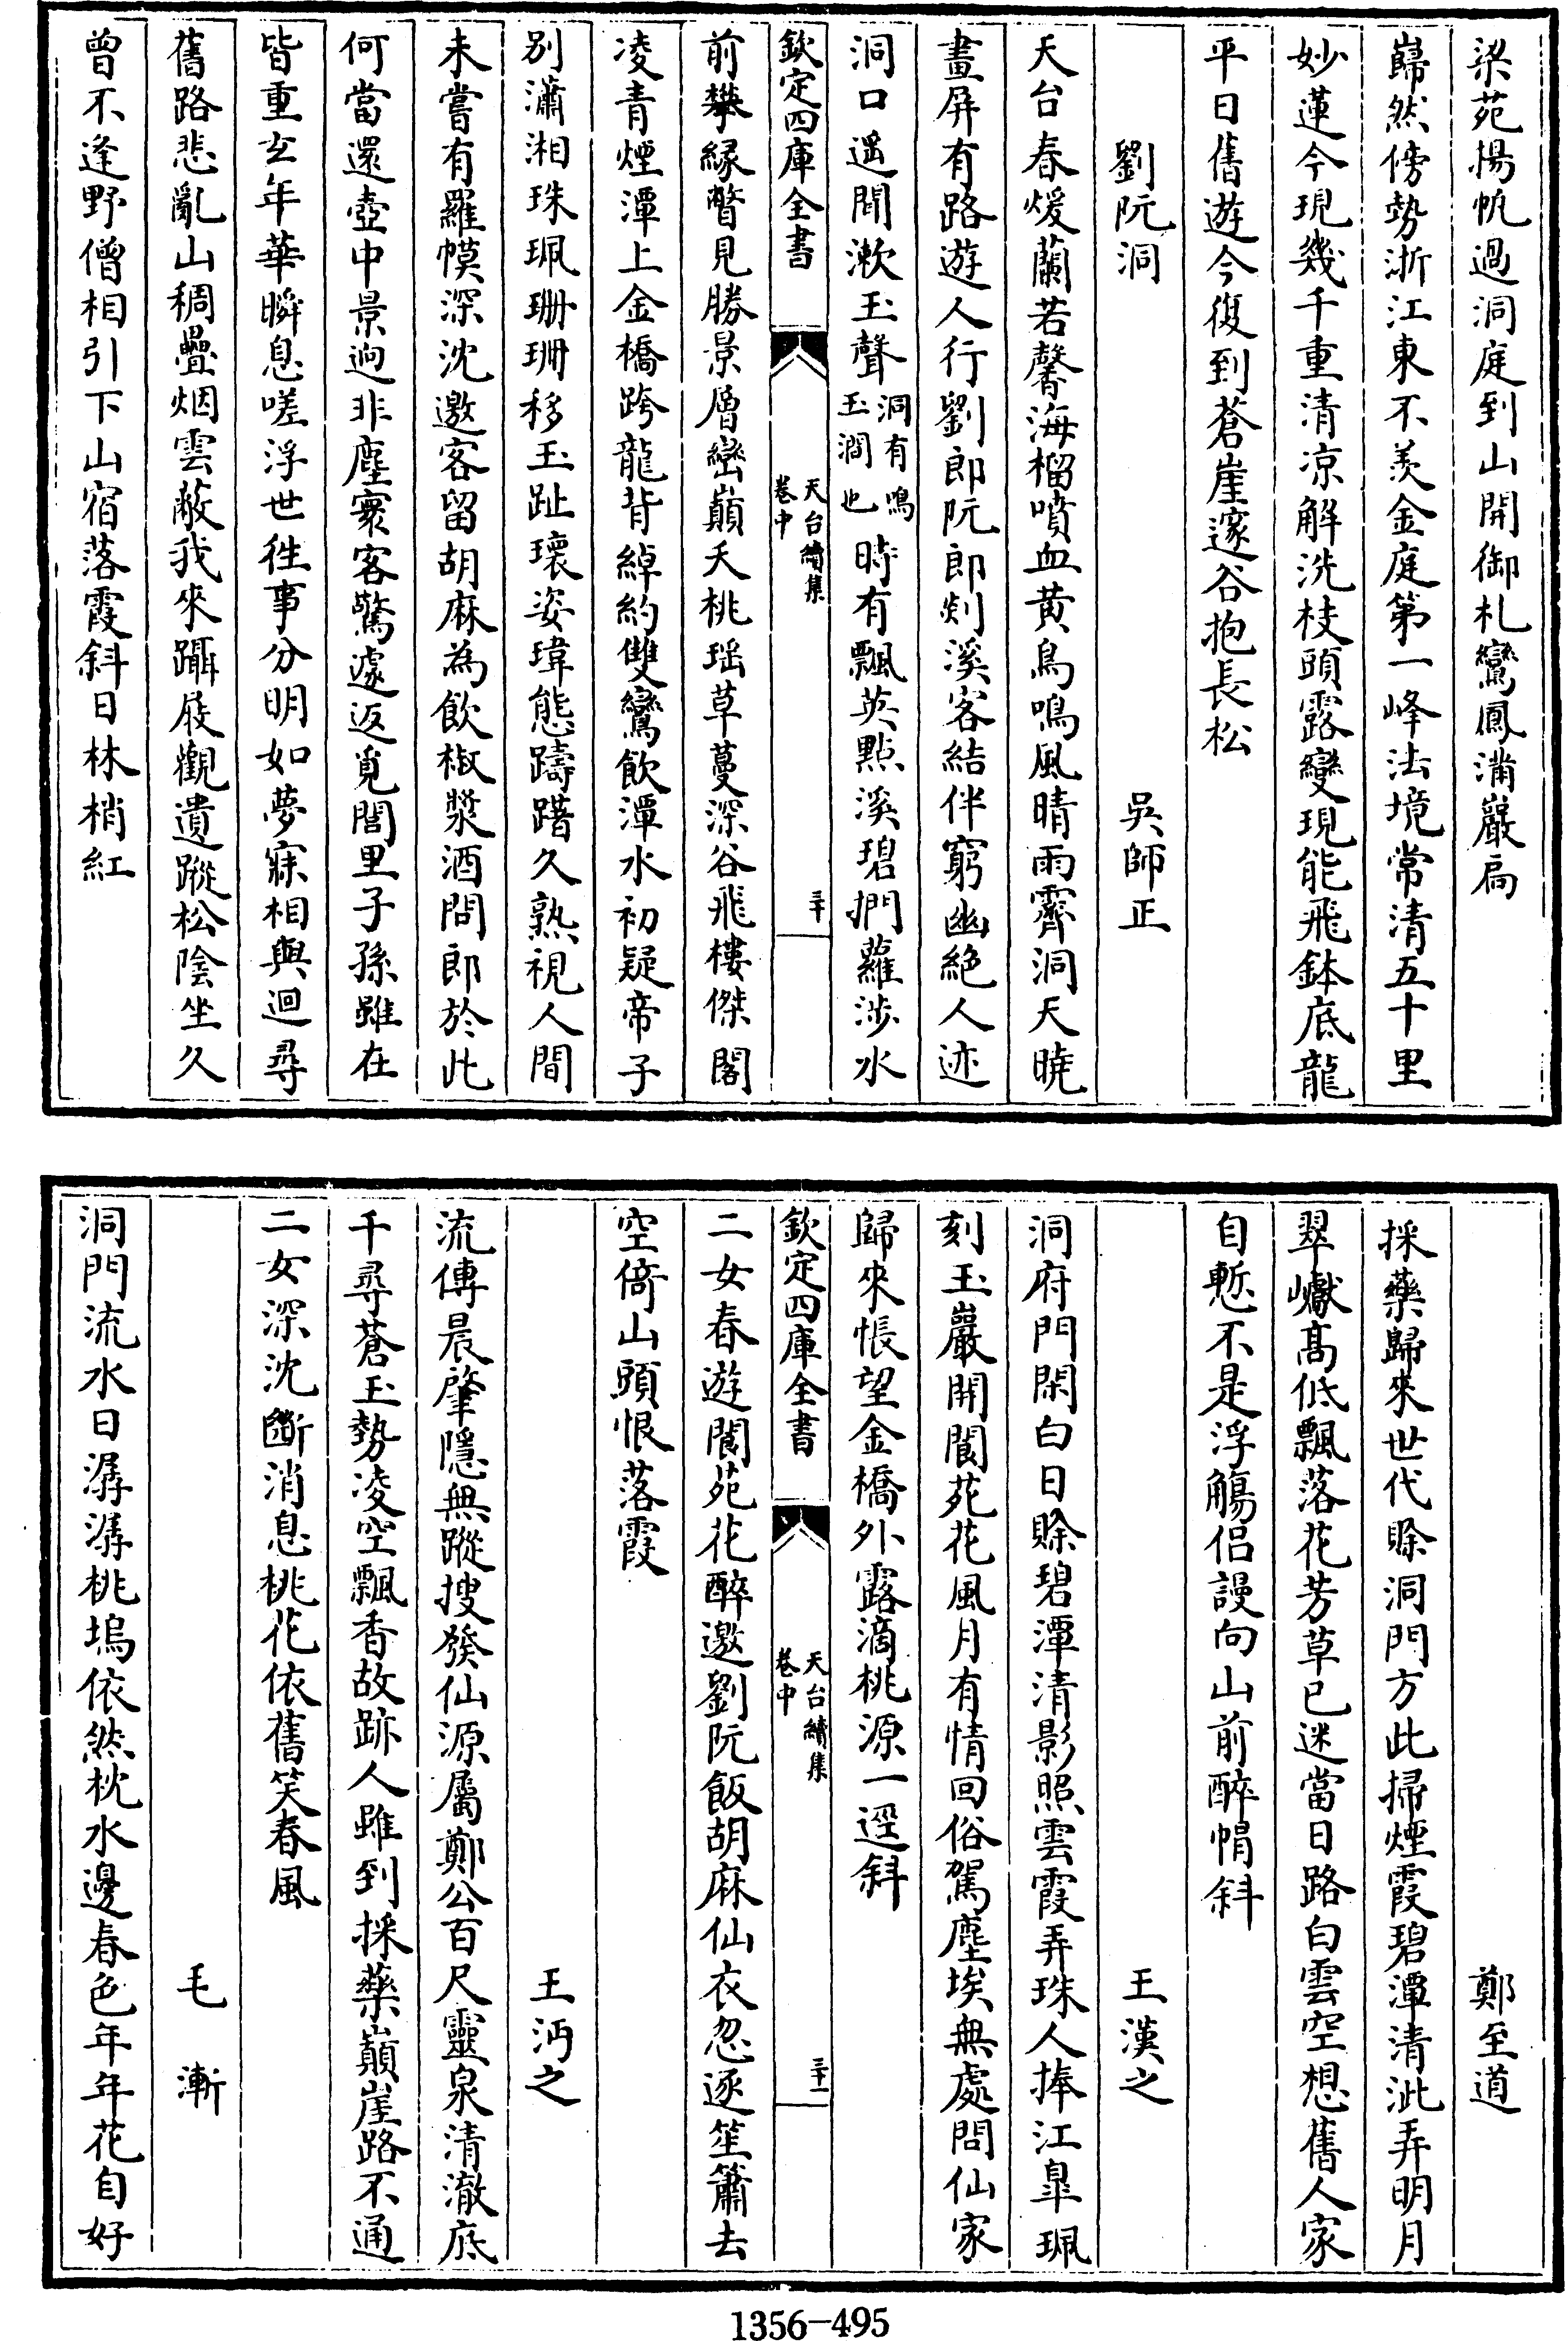 梁苑揚帆過洞庭到山開御札鸞鳳滿巖扃
巋然傍勢浙江東不羨金庭第一峰法境常清五十里
妙蓮今現幾千重清凉解洗枝頭露變現能飛鉢底龍
平日舊遊今復到蒼崖邃谷抱長松
劉阮洞
吳師正
天台春煖蘭若馨海榴噴血黄鳥鳴風晴雨霽洞天曉
畫屏有路遊人行劉郎阮郎剡溪客結伴窮幽絶人迹
洞口遥聞漱玉聲洞有鳴玉澗也時有飄英點溪碧捫蘿涉水
欽定四庫全書
天台續集
卷中
三十
前攀緣瞥見勝景層巒巔夭桃瑶草蔓深谷飛樓傑閣
凌青煙潭上金橋跨龍背綽約雙鸞飲潭水初疑帝子
别瀟湘珠珮珊珊移玉趾瓌姿瑋態躊躇久熟視人間
未嘗有羅幙深沈邀客留胡麻為飲椒漿酒問郎於此
何當還壺中景逈非塵寰客驚遽返覓閭里子孫雖在
皆重玄年華瞬息嗟浮世徃事分明如夢寐相與迴尋
舊路悲亂山稠疊烟雲蔽我來躡屐觀遺蹤松陰坐久
曾不逢野僧相引下山宿落霞斜日林梢紅
鄭至道
採藥歸來世代賒洞門方此掃煙霞碧潭清泚弄明月
翠巘髙低飄落花芳草已迷當日路白雲空想舊人家
自慙不是浮觴侣謾向山前醉帽斜
王漢之
洞府門閑白日賒碧潭清影照雲霞弄珠人捧江臯珮
刻玉巖開閬苑花風月有情回俗駕塵埃無處問仙家
歸來悵望金橋外露滴桃源一逕斜
欽定四庫全書
天台續集
卷中
三十一
二女春遊閬苑花醉邀劉阮飯胡麻仙衣忽逐笙簫去
空倚山頭恨落霞
王沔之
流傳晨肇隱無蹤搜發仙源屬鄭公百尺靈泉清澈底
千尋蒼玉勢凌空飄香故跡人雖到採藥巔崖路不通
二女深沈斷消息桃花依舊笑春風
毛漸
洞門流水日潺潺桃塢依然枕水邊春色年年花自好
1356-495